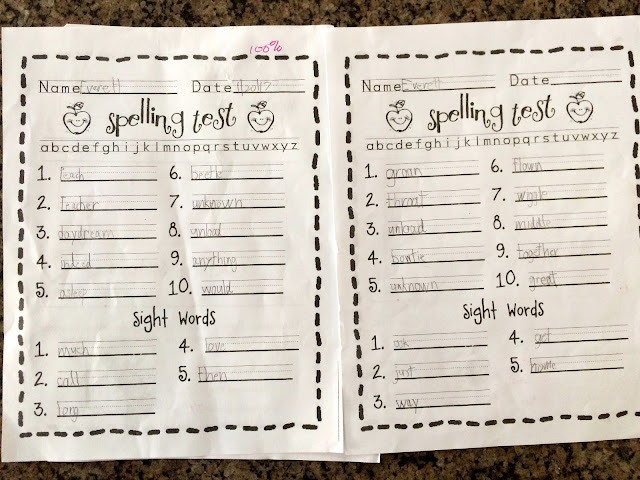 100%
Name Everett Date
spelling test
abcdefghijklmnopqrstuvwxyz
1. teach
2. teacher
3. daydream
4. indeed
5. asleep
6. beetle
7. unknown
8. unload
9. anything
10. would
Sight Words
1. much
2. call
3. long
4. love
5. then
Name Everett Date
spelling test
abcdefghijklmnopqrstuvwxyz
1. groan
2. throat
3. unload
4. bowtie
5. unknown
6. flown
7. wiggle
8. middle
9. together
10. great
Sight Words
1. ask
2. just
3. way
4. get
5. home